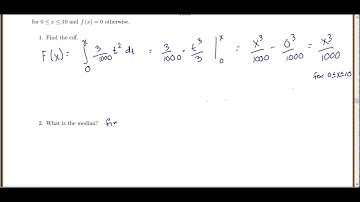 for 0 ≤ x ≤ 10 and f (x) = 0 otherwise.
1. Find the cdf.
F(x) = ∫₀ˣ 3/1000 t² dt = 3/1000 · t³/3 |₀ˣ = x³/1000 − 0³/1000 = x³/1000
for 0≤x≤10
2. What is the median? fin